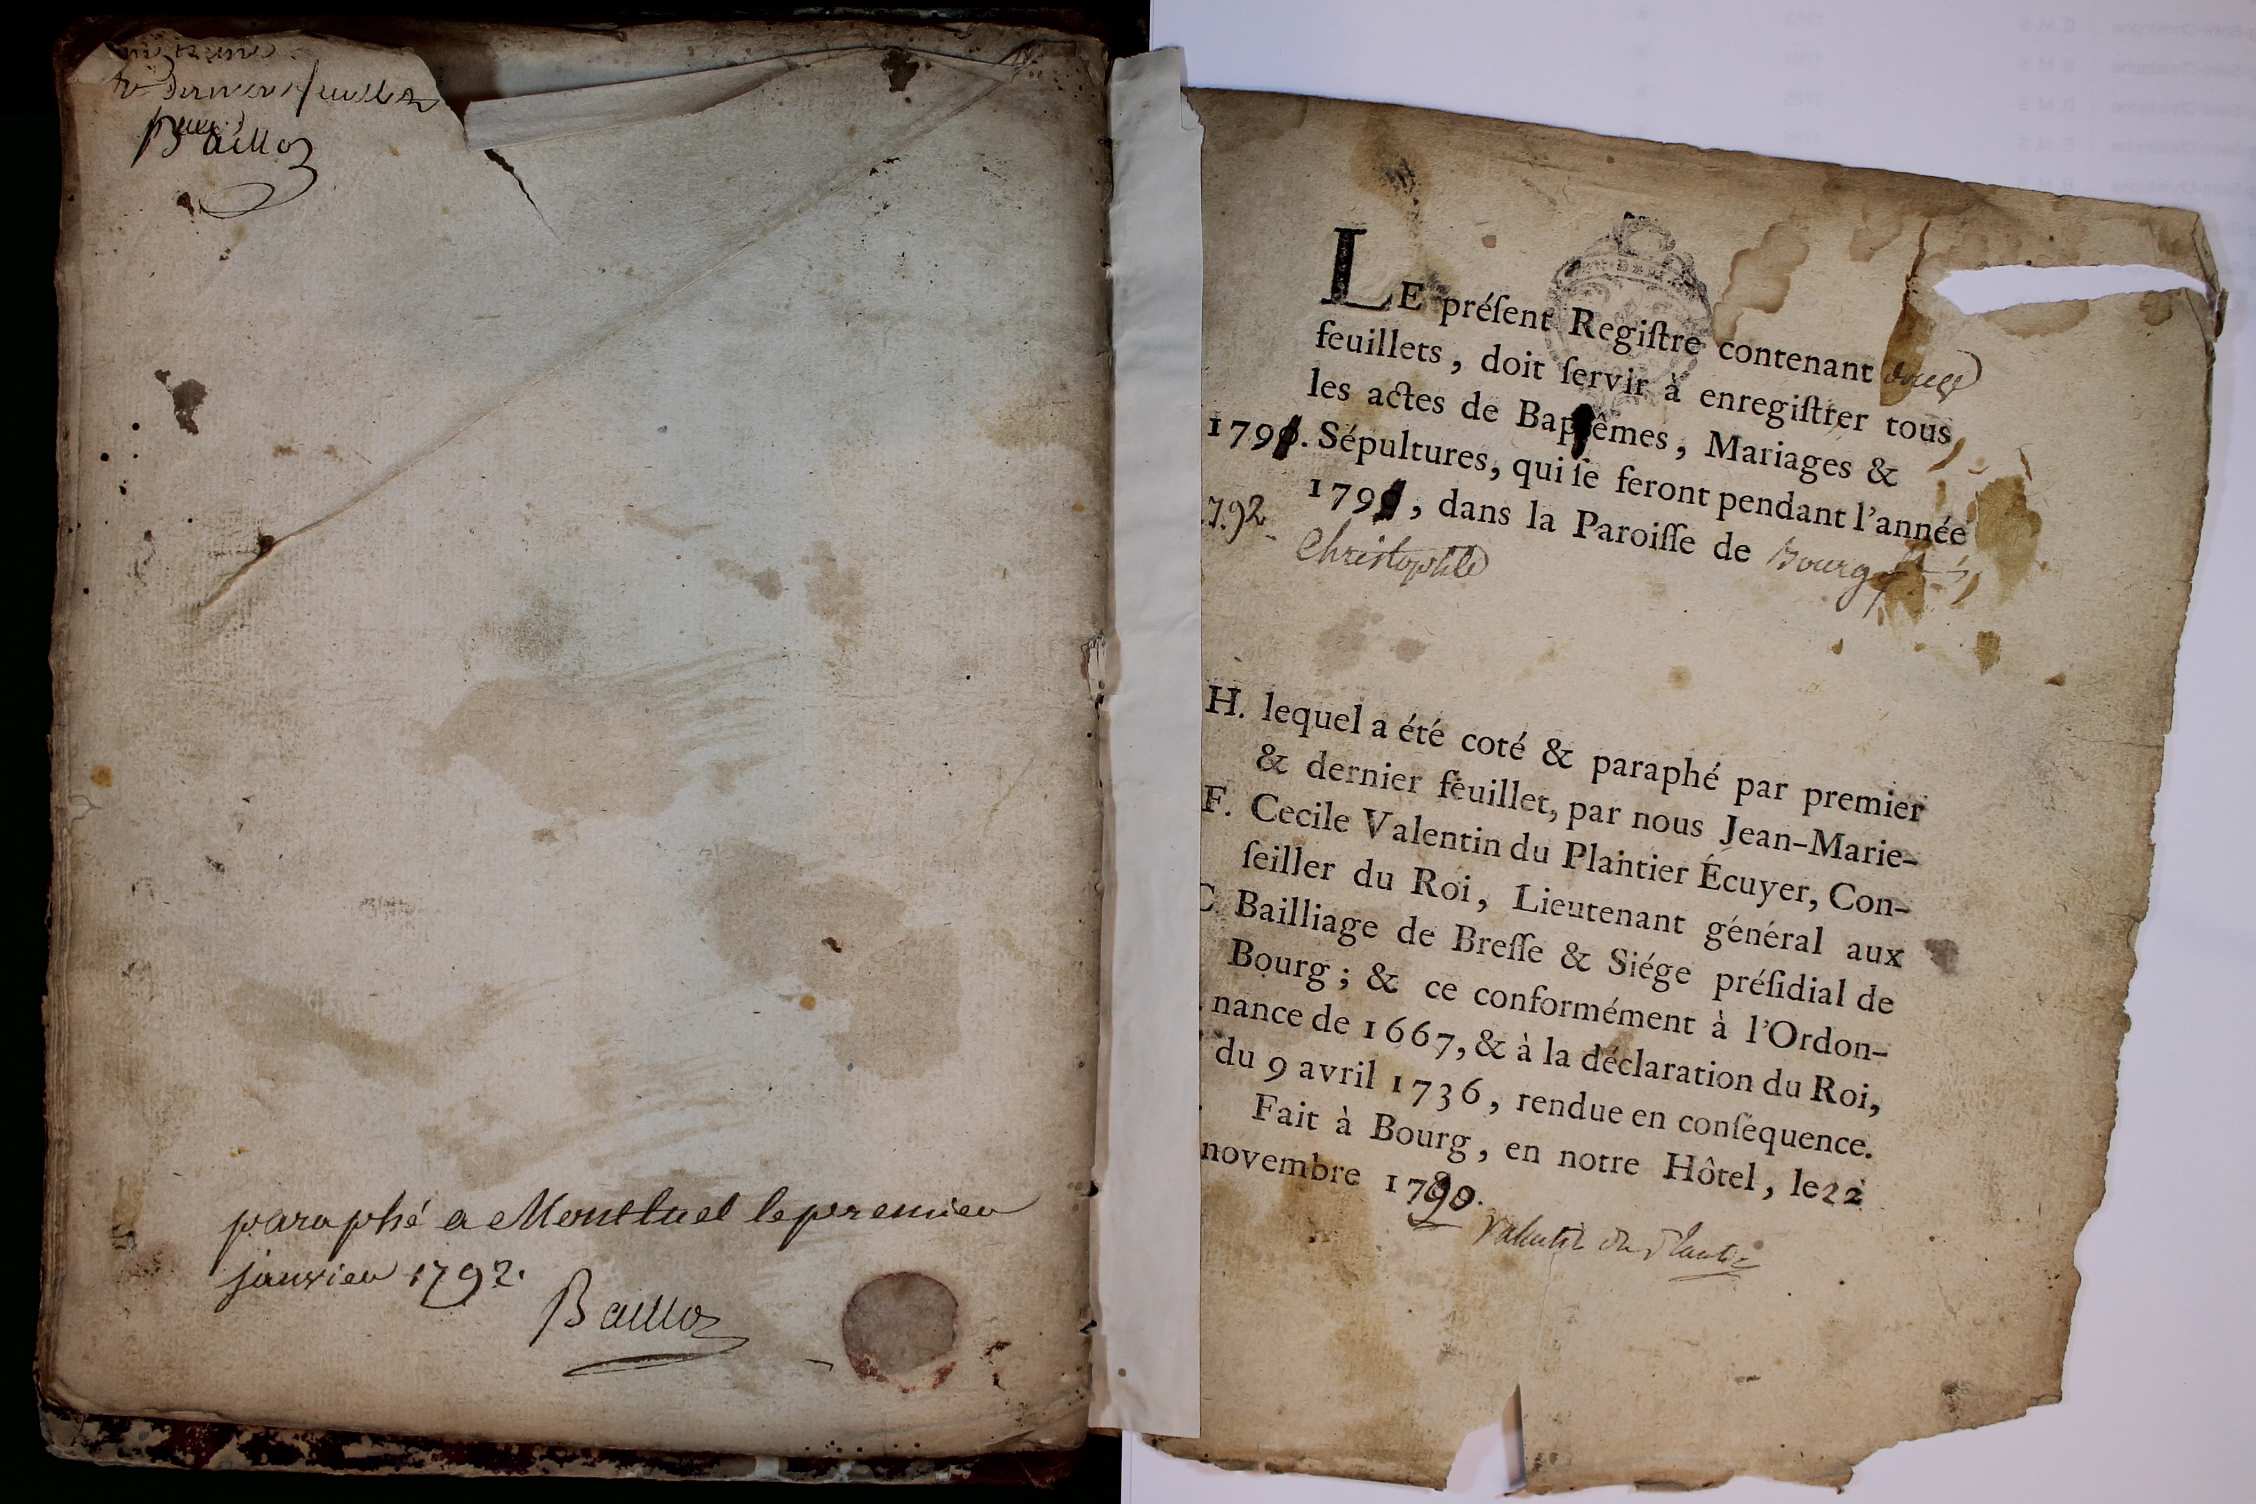 dernier feuillet
Baillod
paraphé a Montluel le premier
janvier 1792.
Baillod
LE préſent Regiſtre contenant douze
feuillets, doit ſervir à enregiſtrer tous
les actes de Baptêmes, Mariages &
1791. Sépultures, qui ſe feront pendant l'année
1791, dans la Paroiſſe de Bourg St
1792
Christophle
H. lequel a été coté & paraphé par premier
& dernier feuillet, par nous Jean-Marie-
F. Cecile Valentin du Plantier Écuyer, Con-
ſeiller du Roi, Lieutenant général aux
C Bailliage de Breſſe & Siége préſidial de
Bourg; & ce conformément à l'Ordon-
nance de 1667, & à la déclaration du Roi,
du 9 avril 1736, rendue en conſéquence.
Fait à Bourg, en notre Hôtel, le 22
novembre 1790.
Valentin du Plantier